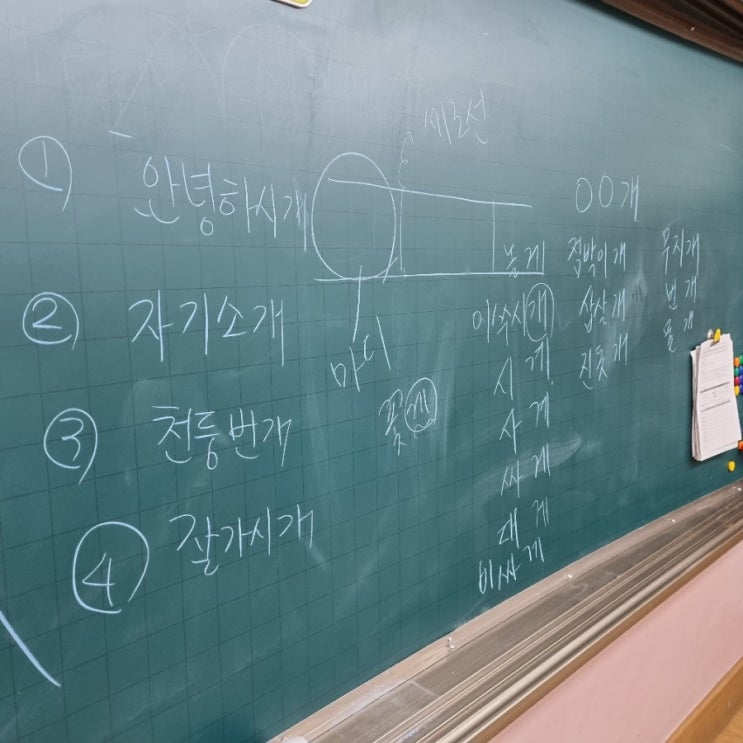 세로선
① 안녕하시개
② 자기소개
③ 천둥번개
④ 잘가시개
마디
꽃게
놀게
이쑤시개
시계
사계
싸게
대게
비싸게
OO개
점박이개
삽살개
진돗개
무지개
번개
물개